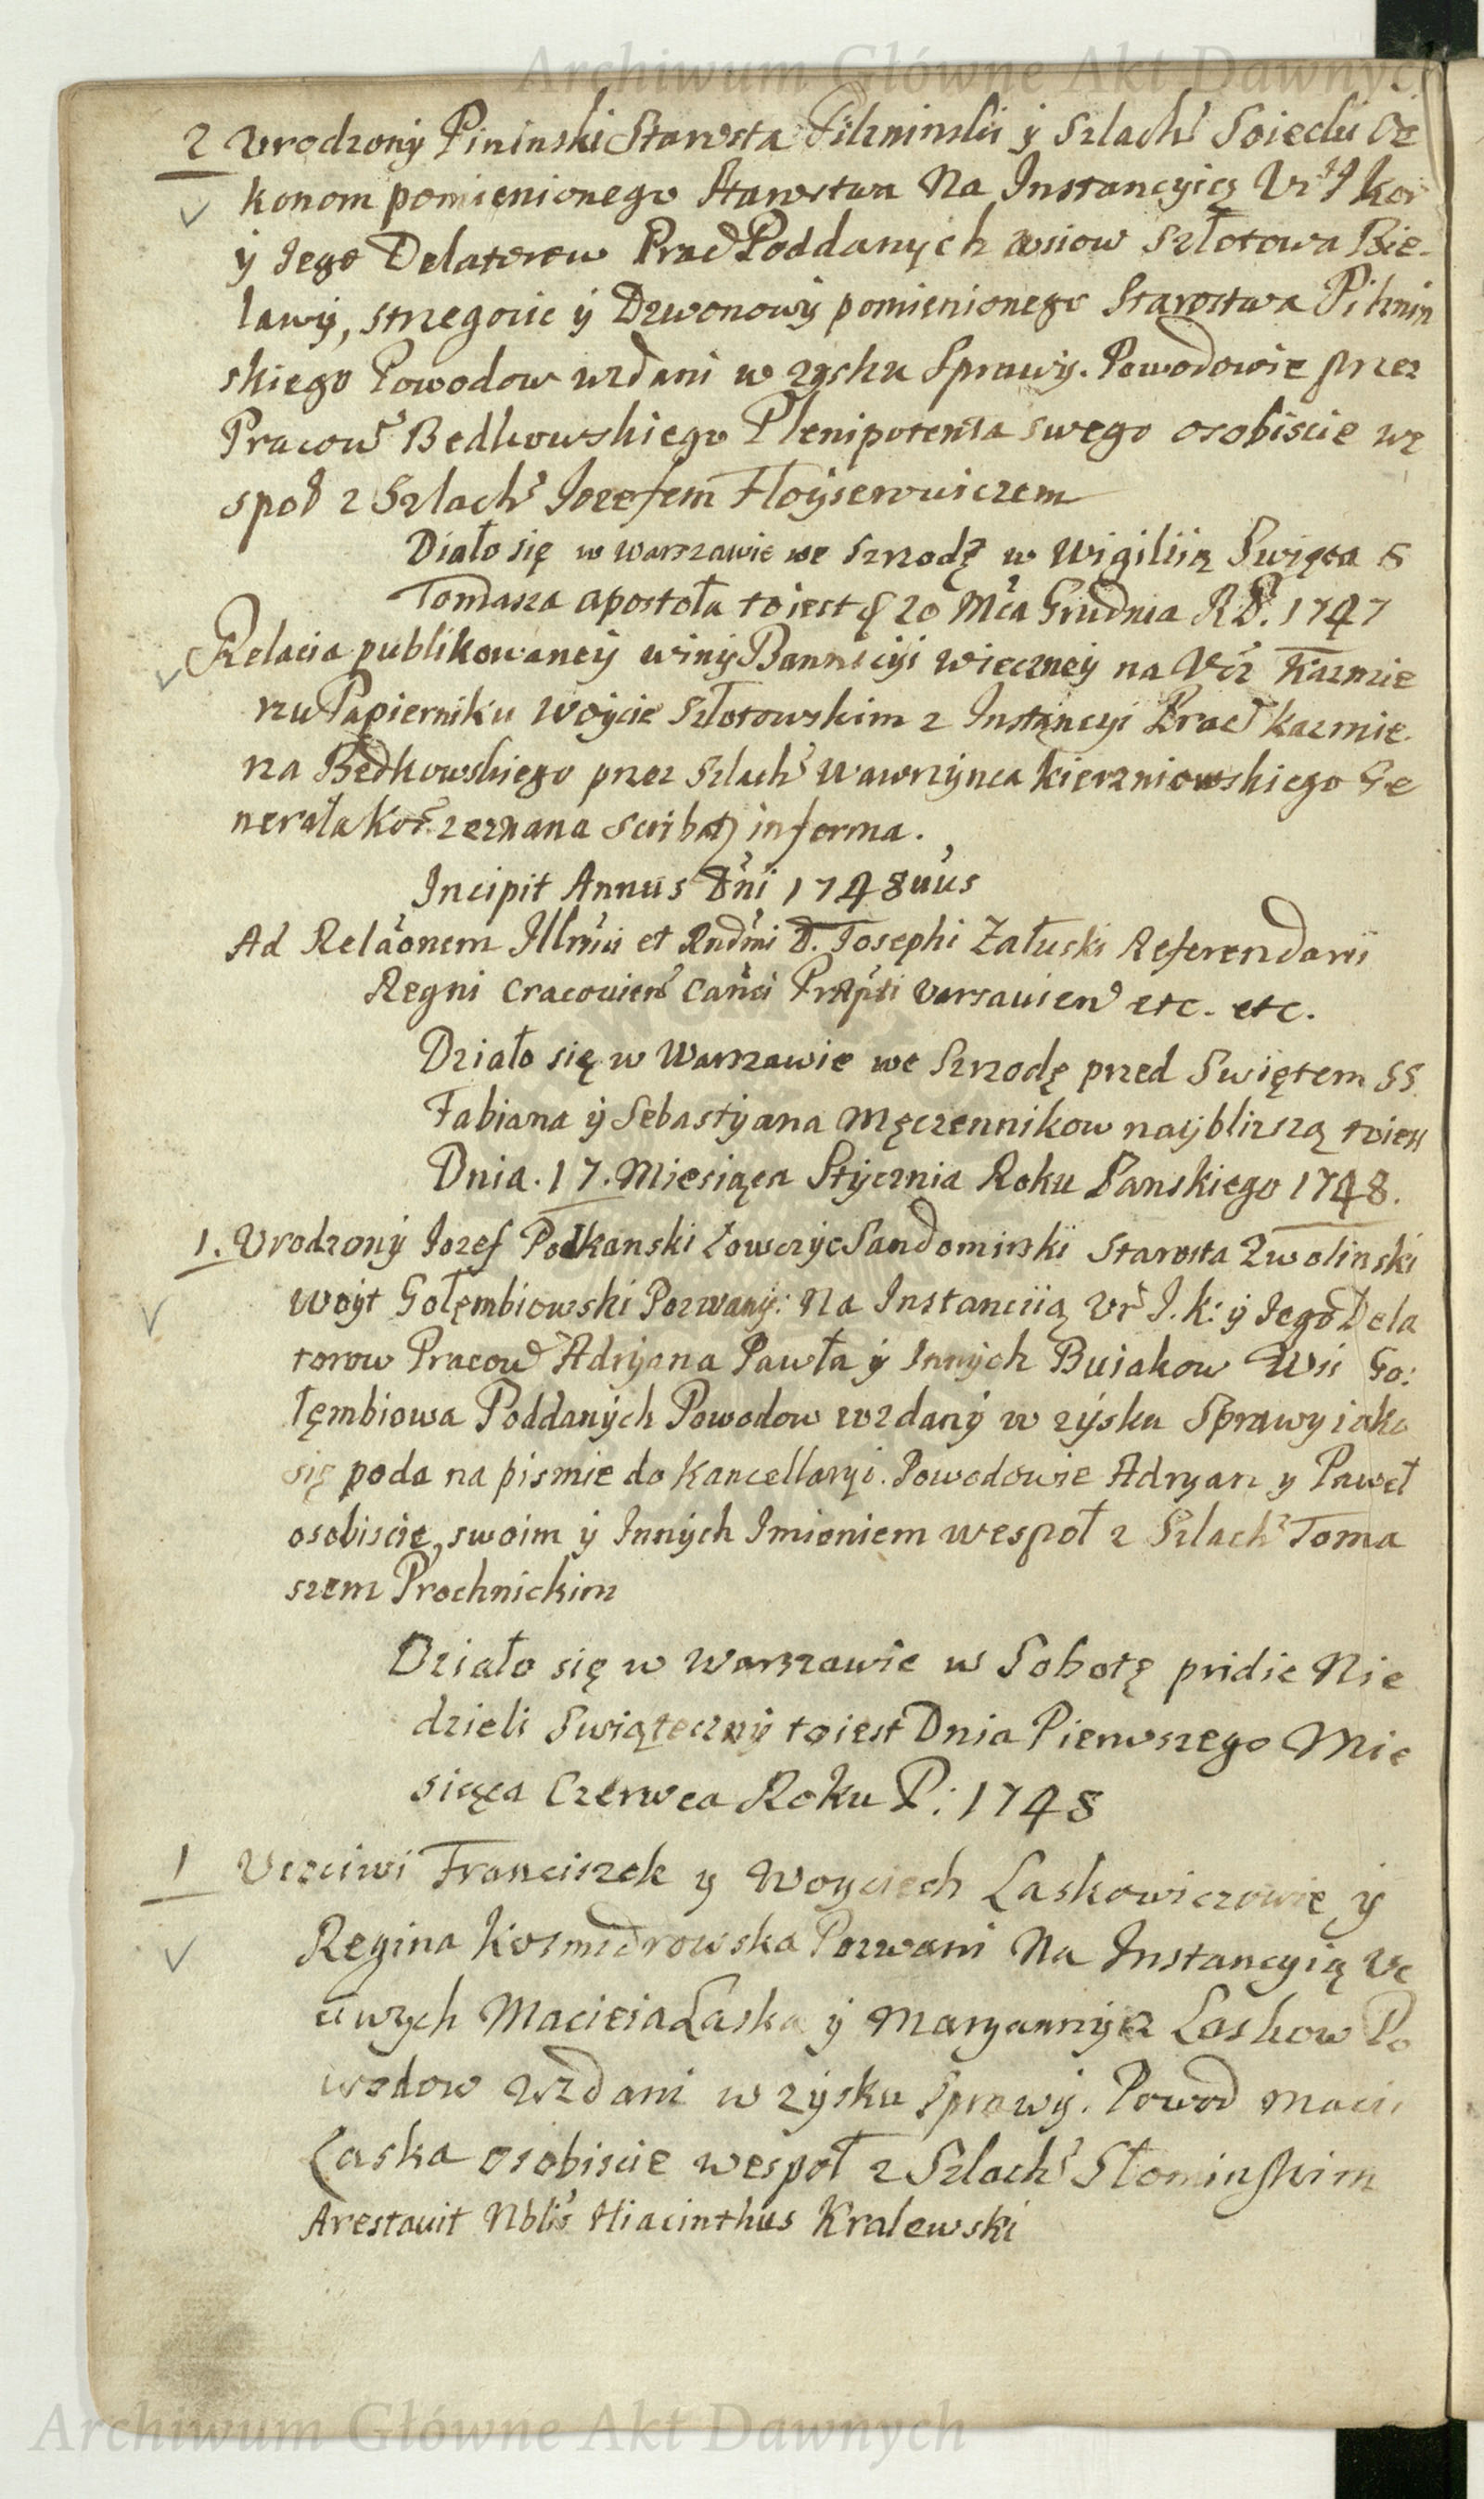 Archiwum Główne Akt Dawnych
2 Urodzony Pininski Starosta Pilzninski y Szlach Soiecki Oe
konom pomienionego Starostwa Na Instancyią Ur J Kor
y Jego Delatorow Prac Poddanych wsiow Szłotowa Bie-
lawy, Strzegocic y Dzwonowy pomienionego Starostwa Pilznin
skiego Powodow wzdani w zysku Sprawy. Powodowie przez
Pracow Bedkowskiego Plenipotenta swego osobiscie we
społ z Szlach Jozefem Floysewiczem
Diało się w Warszawie we Szrzodę w Wigiliią Swięta S
Tomasza apostoła to iest d 20 Mca Grudnia R P. 1747
Relacia publikowaney winy Bannicyi wieczney na Ucz Kazmie
rzu Papierniku Woycie Szłotowskim z Instancyi Prac kazmie-
rza Bedkowskiego przez Szlach Wawrzynca Kierzniowskiego Ge
nerała Kor. zeznana scribatj in forma.
Incipit Annus Dni 1748uus
Ad Relaonem Illmi et Rndmi D. Josephi Załuski Referendarii
Regni Cracouien Canci Prapti Varsauien etc. etc.
Działo się w Warszawie we Szrzodę przed Swiętem SS.
Fabiana y Sebastyana Męczennikow nayblizszą toiest
Dnia. 17. Miesiąca Stycznia Roku Panskiego 1748.
1. Urodzony Jozef Podkanski Łowczyc Sandomirski Starosta Zwolinski
Woyt Gołęmbiowski Pozwany: Na Instanciią Ur J. k: y Jego Dela
torow Pracow Adryana Pawła y Innych Buiakow Wsi Go:
łęmbiowa Poddanych Powodow wzdany w zysku Sprawy iako
się poda na pismie do Kancellaryi. Powodowie Adryan y Paweł
osobiscie, swoim y Innych Imieniem wespoł z Szlach Toma
szem Prochnickim
Działo się w Warszawie w Sobotę pridie Nie
dzieli Swiąteczny toiest Dnia Pierwszego Mie
siąca Czerwca Roku P: 1748
1 Uczciwi Franciszek y Woyciech Laskowiczowie y
Regina Kosmidrowska Pozwani Na Instancyią Uc
ciwych Macieia Laska y Maryanny Laskow Po
wodow wzdani w zysku Sprawy. Powod Maciey
Laska osobiscie wespoł z Szlach Słominskim
Arestauit Nblis Hiacinthus Kralewski
Archiwum Główne Akt Dawnych